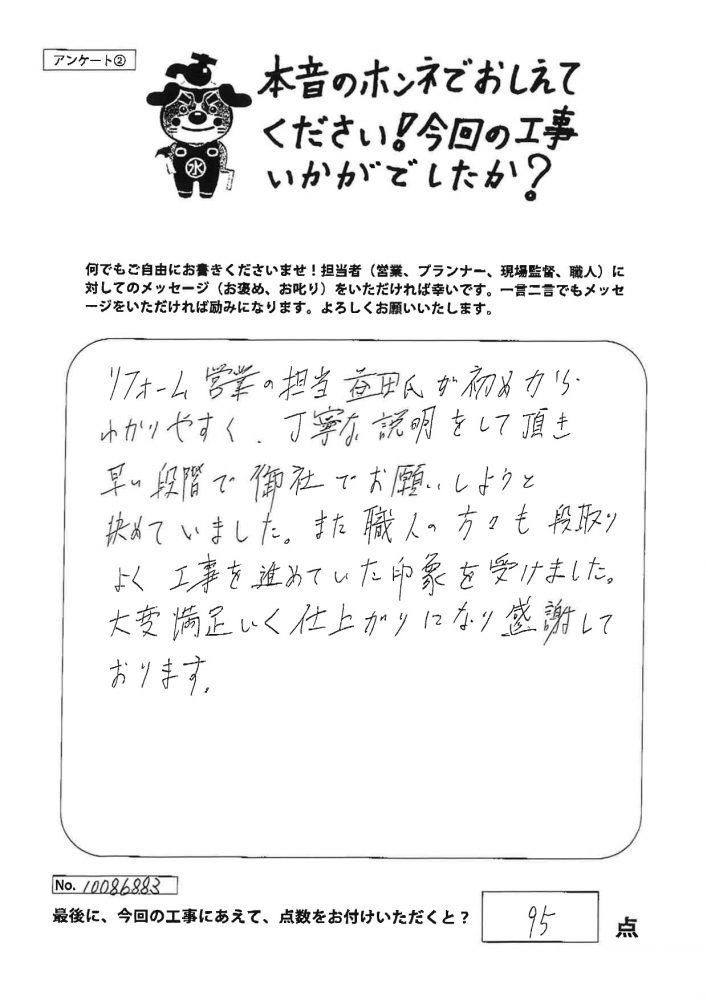 アンケート②
本音のホンネでおしえて
ください!今回の工事
いかがでしたか?
水
何でもご自由にお書きくださいませ!担当者（営業、プランナー、現場監督、職人）に
対してのメッセージ（お褒め、お叱り）をいただければ幸いです。一言二言でもメッセ
ージをいただければ励みになります。よろしくお願いいたします。
リフォーム営業の担当益田氏が初めから
わかりやすく、丁寧な説明をして頂き
早い段階で御社でお願いしようと
決めていました。また職人の方々も段取り
よく工事を進めていた印象を受けました。
大変満足いく仕上がりになり感謝して
おります。
No. 10086883
最後に、今回の工事にあえて、点数をお付けいただくと？ 95 点